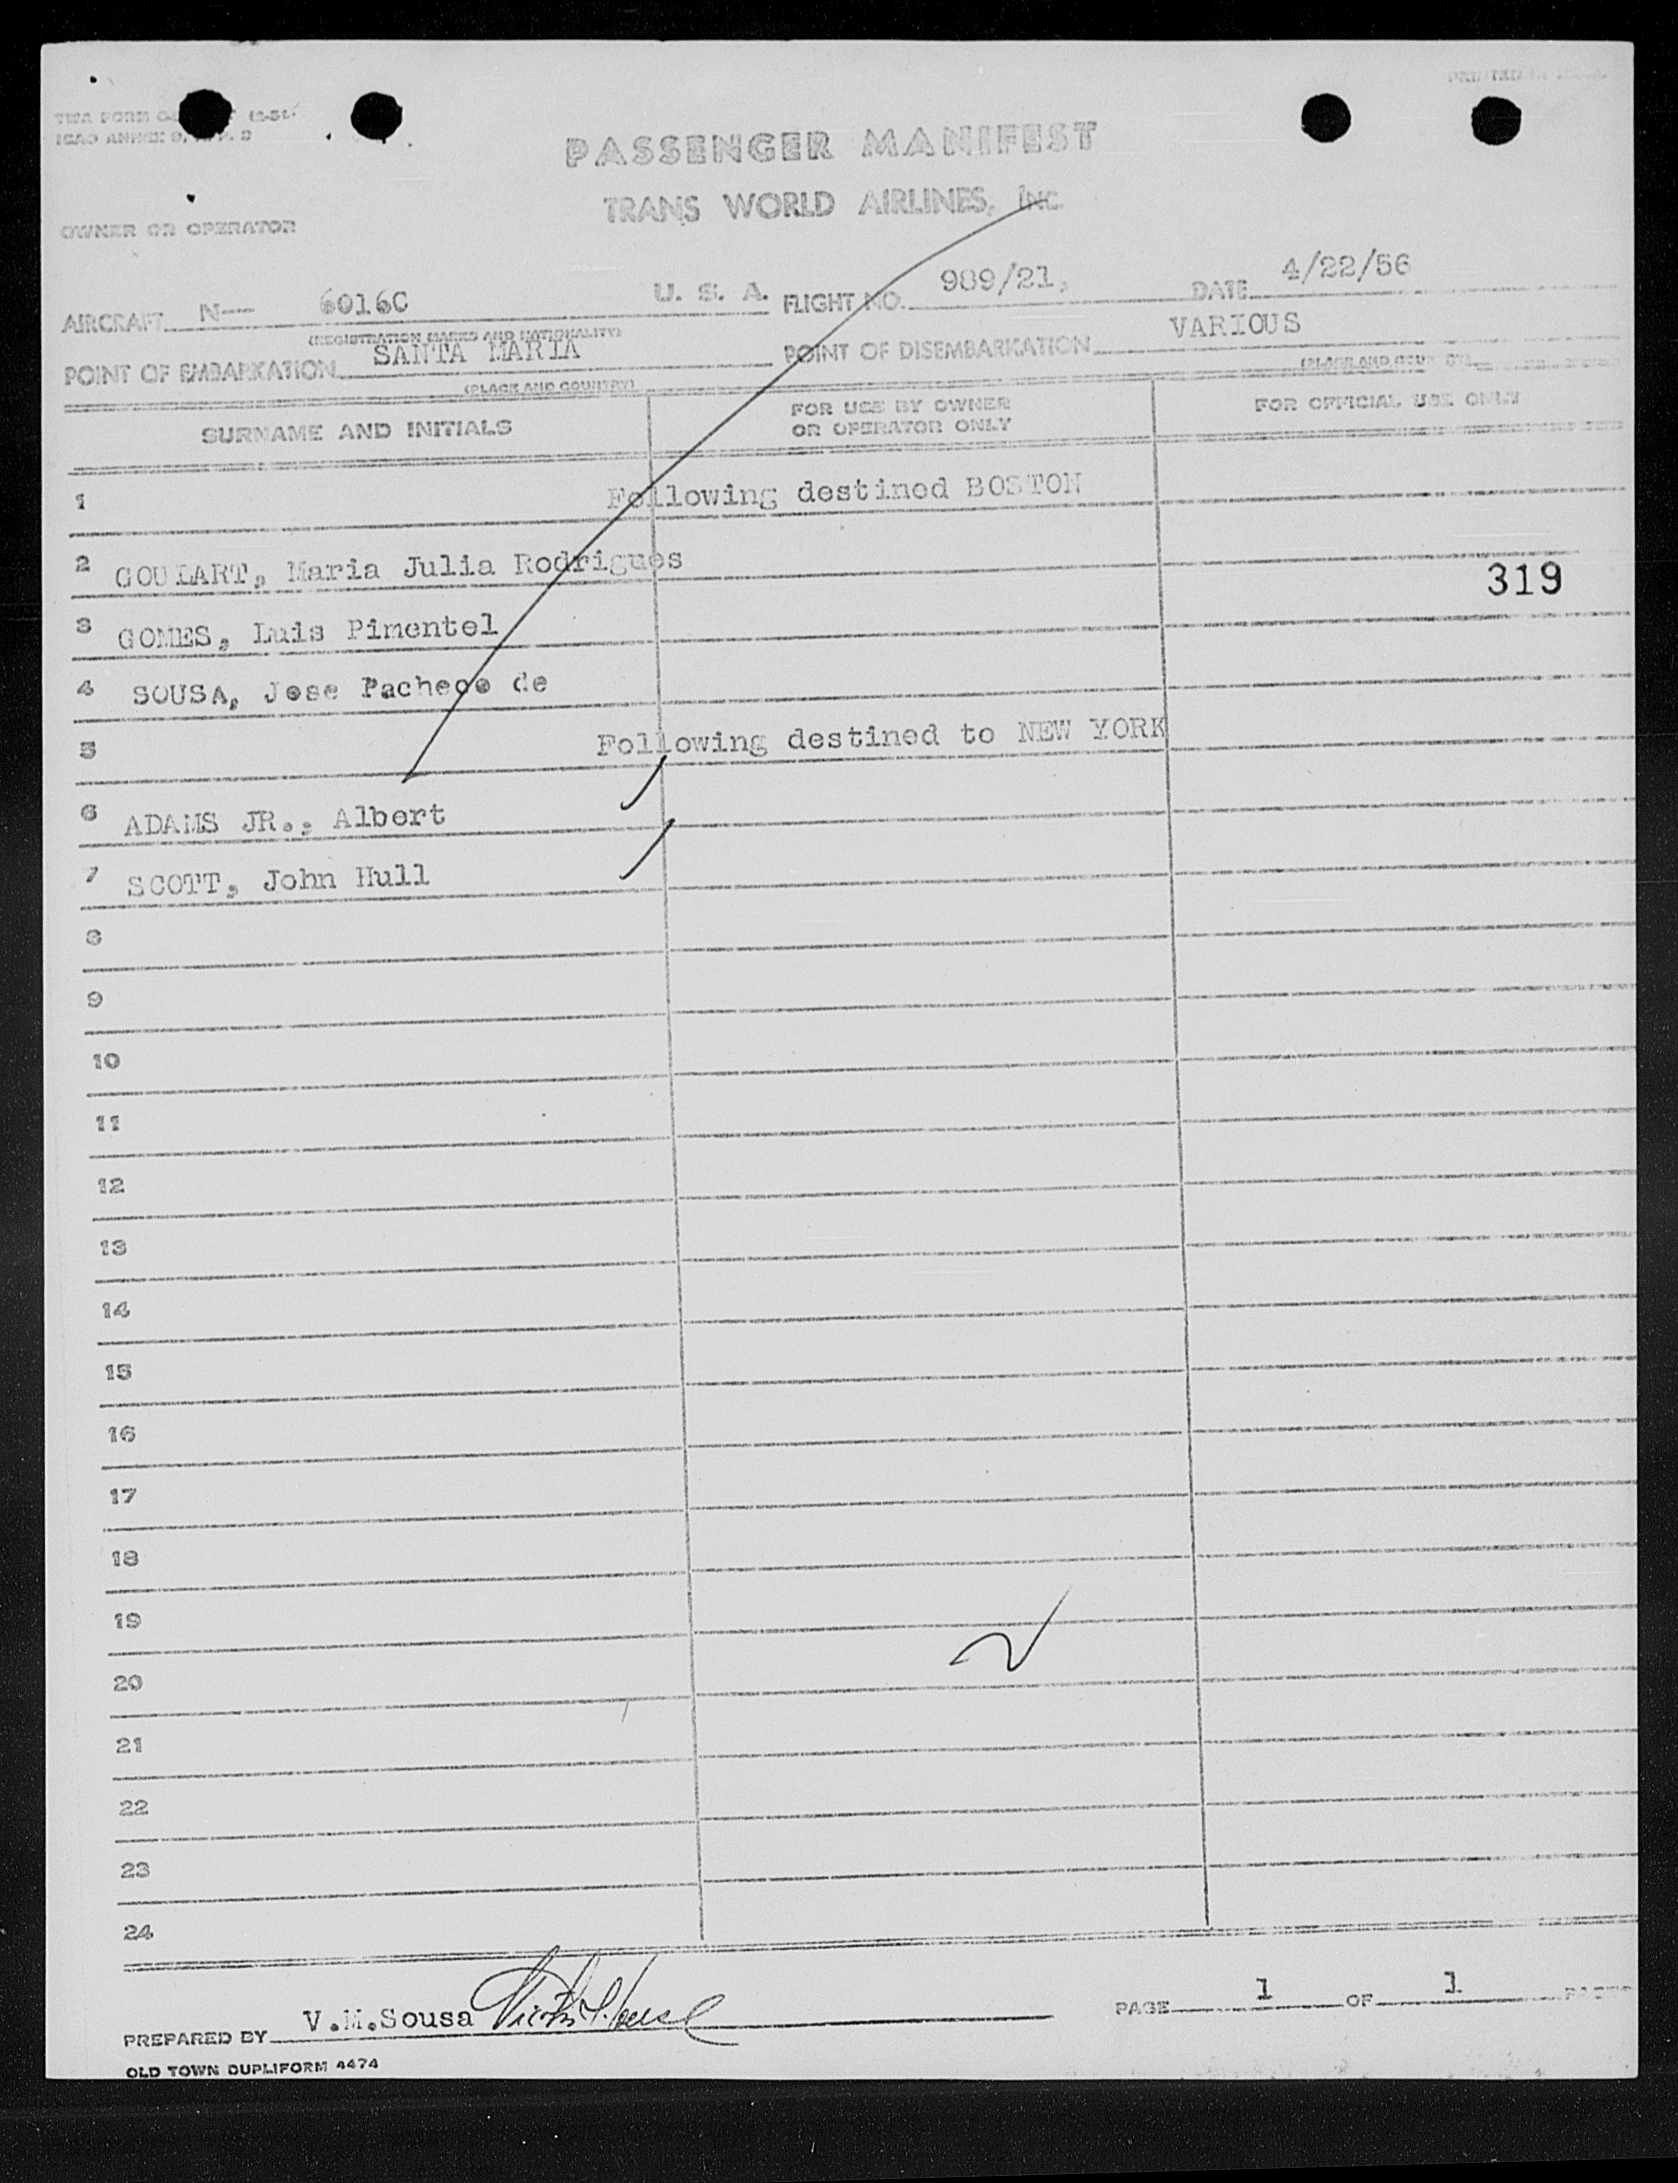 PRINTED IN U.S.A.
TWA FORM
ICAO ANNEX 9,
PASSENGER MANIFEST
TRANS WORLD AIRLINES, INC.
OWNER OR OPERATOR
AIRCRAFT N-- 6016C U. S. A. FLIGHT NO. 989/21, DATE 4/22/56
(REGISTRATION MARKS AND NATIONALITY)
POINT OF EMBARKATION SANTA MARIA POINT OF DISEMBARKATION VARIOUS
(PLACE AND COUNTRY) (PLACE AND COUNTRY)
SURNAME AND INITIALS FOR USE BY OWNER OR OPERATOR ONLY FOR OFFICIAL USE ONLY
1 Following destined BOSTON
2 GOULART, Maria Julia Rodrigues
319
3 GOMES, Luis Pimentel
4 SOUSA, Jose Pacheco de
5 Following destined to NEW YORK
6 ADAMS JR., Albert
7 SCOTT, John Hull
8
9
10
11
12
13
14
15
16
17
18
19
20
21
22
23
24
PREPARED BY V.M.Sousa PAGE 1 OF 1 PAGES
OLD TOWN DUPLIFORM 4474